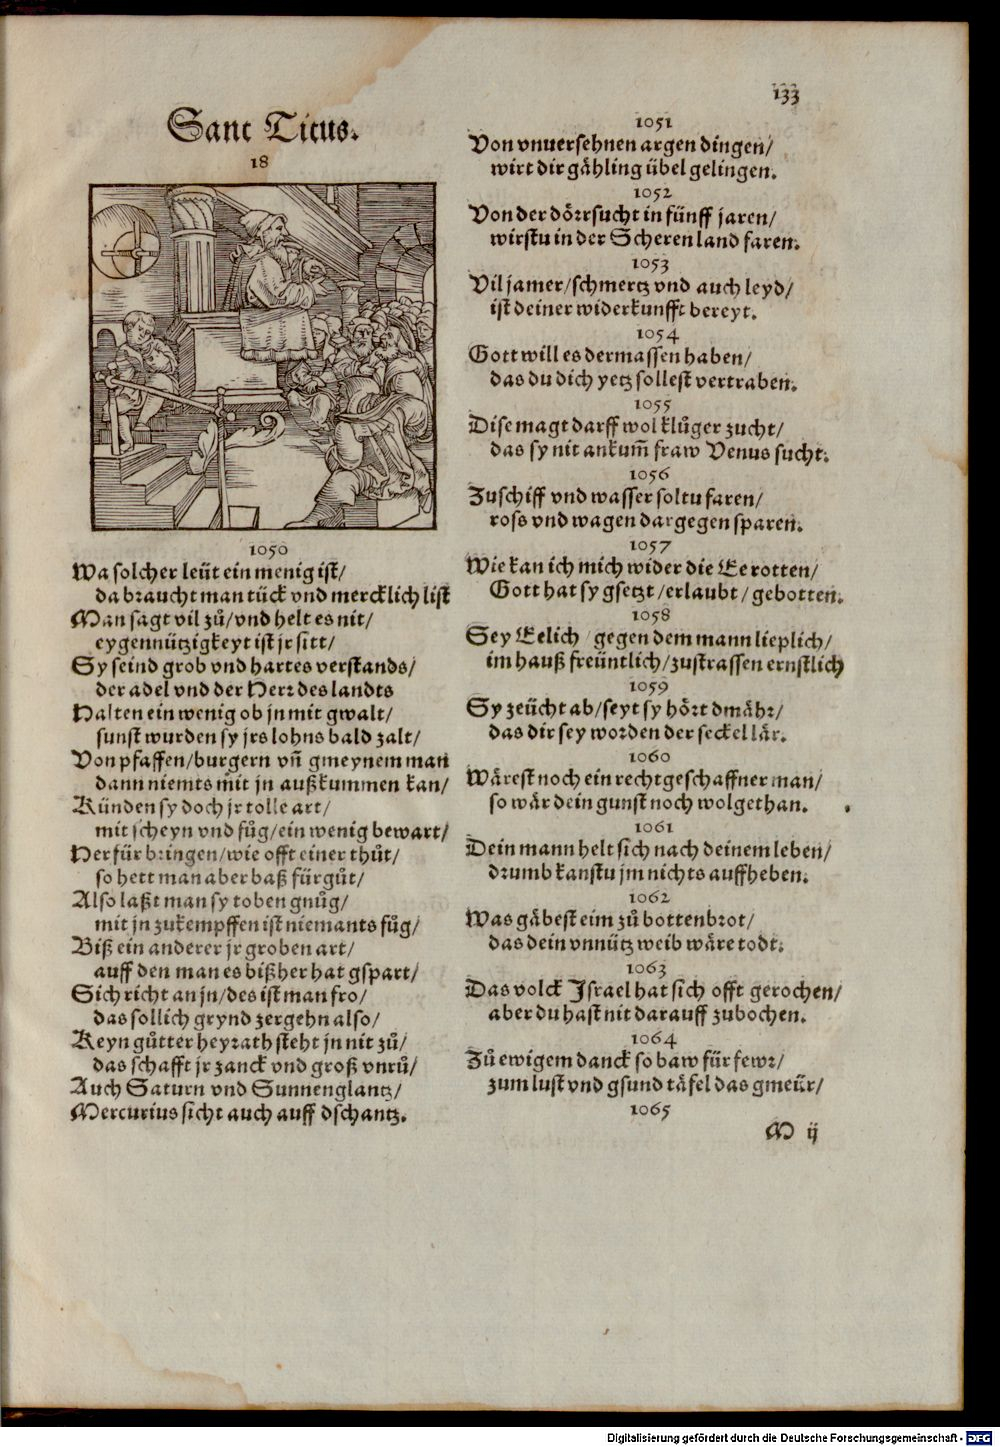 133
Sanct Titus.
18
1050
Wa solcher leüt ein menig ist/
da braucht man tück vnd mercklich list
Man sagt vil zů/vnd helt es nit/
eygennützigkeyt ist jr sitt/
Sy seind grob vnd hartes verstands/
der adel vnd der Herr des landts
Halten ein wenig ob jn mit gwalt/
sunst wurden sy jrs lohns bald zalt/
Von pfaffen/burgern vñ gmeynem man
dann niemts mit jn außkummen kan/
Künden sy doch jr tolle art/
mit scheyn vnd fůg/ein wenig bewart/
Herfür bringen/wie offt einer thůt/
so hett man aber baß fürgůt/
Also laßt man sy toben gnůg/
mit jn zukempffen ist niemants fůg/
Biß ein anderer jr groben art/
auff den man es bißher hat gspart/
Sich richt an jn/des ist man fro/
das sollich grynd zergehn also/
Keyn gůtter heyrath steht jn nit zů/
das schafft jr zanck vnd groß vnrů/
Auch Saturn vnd Sunnenglantz/
Mercurius sicht auch auff dschantz.
1051
Von vnuersehnen argen dingen/
wirt dir gähling übel gelingen.
1052
Von der dörrsucht in fünff jaren/
wirstu in der Scheren land faren.
1053
Vil jamer/schmertz vnd auch leyd/
ist deiner widerkunfft bereyt.
1054
Gott will es dermassen haben/
das du dich yetz sollest vertraben.
1055
Dise magt darff wol klůger zucht/
das sy nit ankum̃ fraw Venus sucht.
1056
Zuschiff vnd wasser soltu faren/
ross vnd wagen dargegen sparen.
1057
Wie kan ich mich wider die Ee rotten/
Gott hat sy gsetzt/erlaubt/gebotten.
1058
Sey Eelich/gegen dem mann lieplich/
im hauß freüntlich/zustrassen ernstlich
1059
Sy zeücht ab/seyt sy hört dmähr/
das dir sey worden der seckel lär.
1060
Wärest noch ein rechtgeschaffner man/
so wär dein gunst noch wolgethan.
1061
Dein mann helt sich nach deinem leben/
drumb kanstu jm nichts auffheben.
1062
Was gäbest eim zů bottenbrot/
das dein vnnütz weib wäre todt.
1063
Das volck Israel hat sich offt gerochen/
aber du hast nit darauff zubochen.
1064
Zů ewigem danck so baw für fewr/
zum lust vnd gsund täfel das gmeür/
1065
M ij
Digitalisierung gefördert durch die Deutsche Forschungsgemeinschaft - DFG